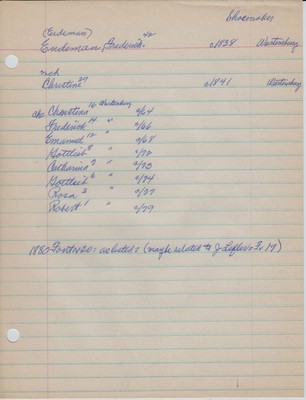 Shoemaker
(Erdeman)
Endeman, Frederick 42 c1838 Wurtemburg
mch
Christine 39 c1841 Wurtemburg
chs Christina 16 Wurtemburg c/64
Frederick 14 " c/66
Emanuel 12 " c/68
Gottlieb 8 " c/72
Catharina 7 " c/73
Gottlieb 6 " c/74
Rosa 3 " c/77
Robert 1 " c/79
1880 as listed: (maybe related to J. Lefler